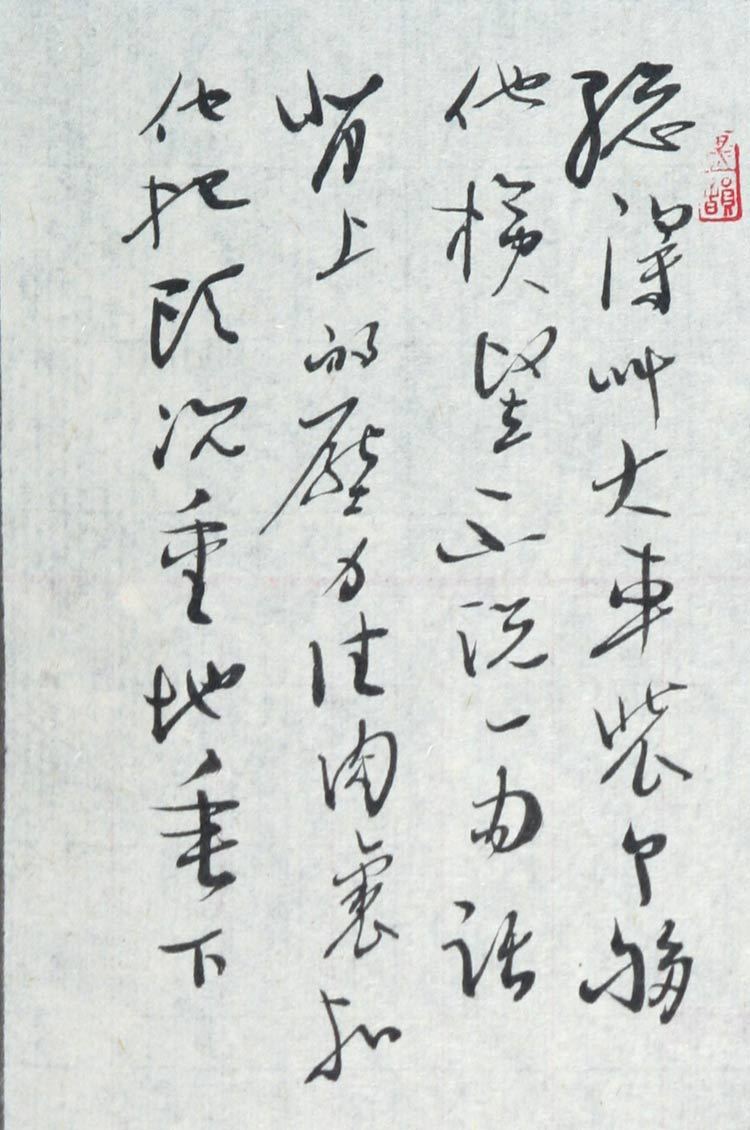 總得叫大車裝個夠
他橫豎不說一句話
背上的壓力往肉裏扣
他把頭沉重地垂下